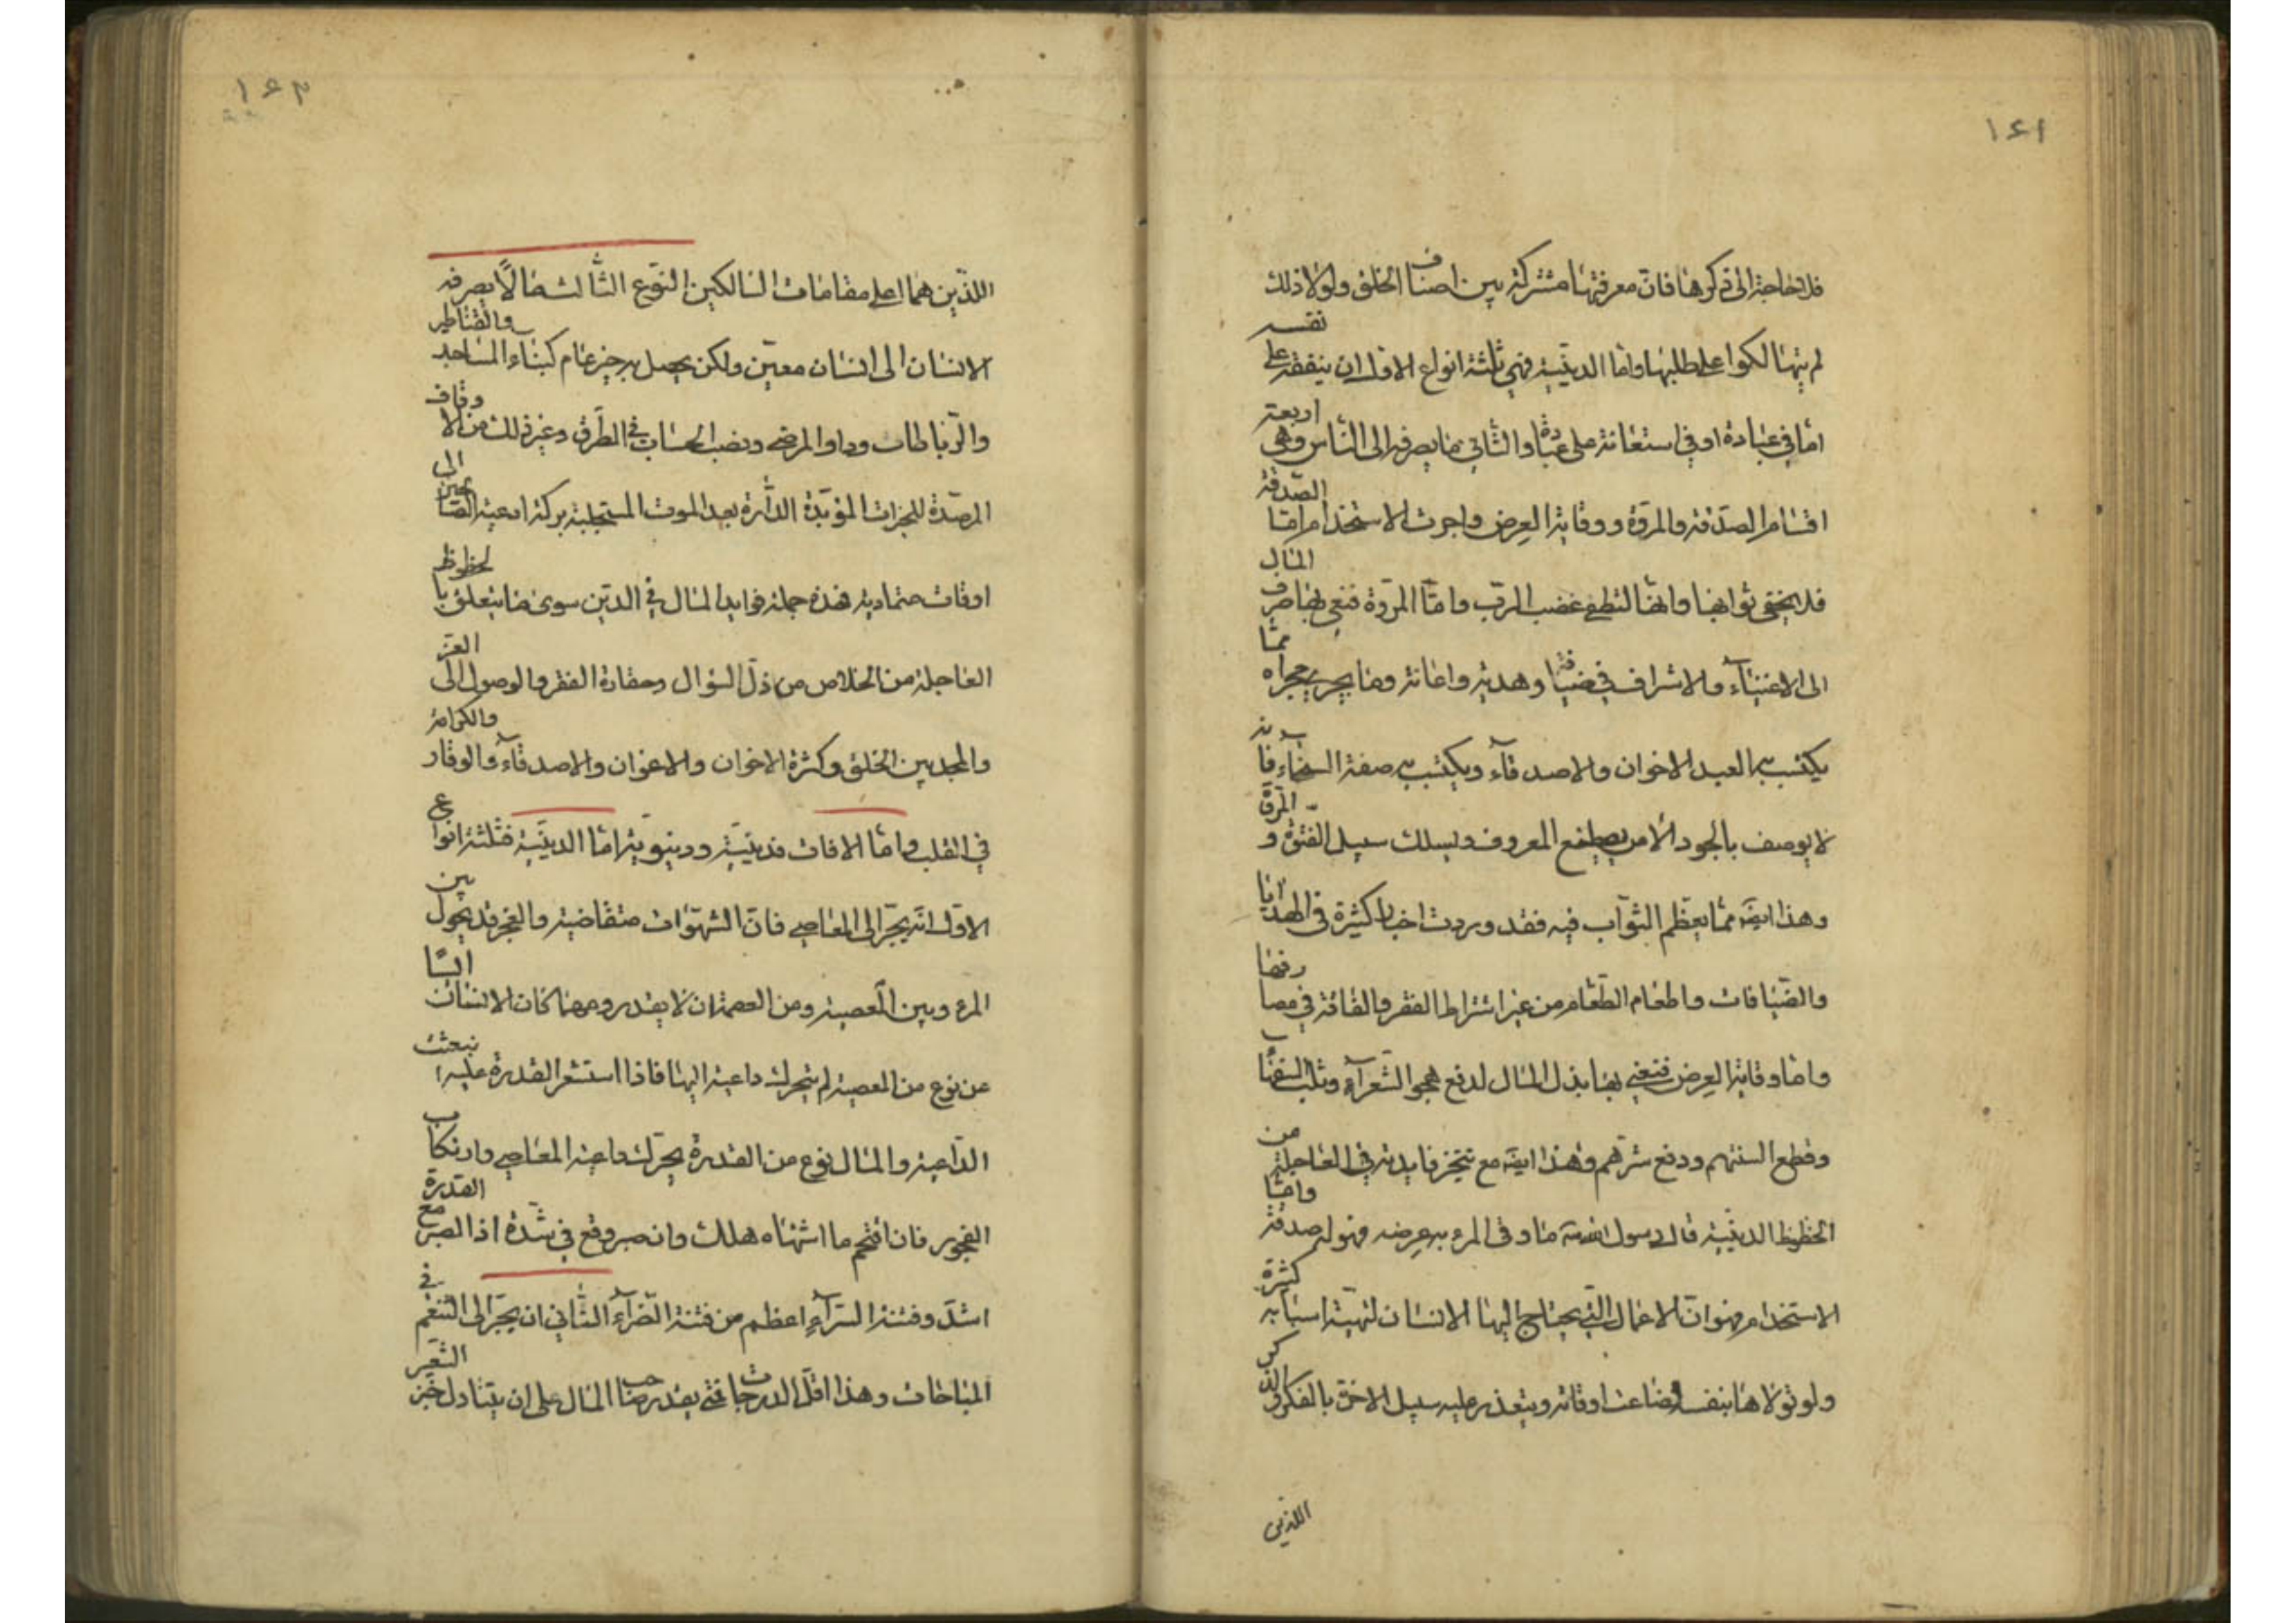 ١٤١
فلا حاجة الى ذكرها فان معرفتها مشتركة بين اصناف الخلق ولولا ذلك
لم يتهالكوا على طلبها واما الدينية فهي ثلثة انواع الاول ان ينفقه على نفسه
اما في عبادة او في استعانة على عبادة والثاني ما يصرفه الى الناس وهي اربعة
اقسام الصدقة والمروة ووقاية العرض واجرت الاستخدام اما الصدقة
فلا يخفى ثوابها وانها لتطفى غضب الرب واما المروة فنعني بها صرف المال
الى الاغنياء والاشراف في ضيافة وهدية واعانة وما يجري مجراه مما
يكتسب به العبد الاخوان والاصدقاء ويكتسب به صفة السخاء فانه
لا يوصف بالجود الا من يصطنع المعروف ويسلك سبيل الفتوة و المروة
وهذا ايضَ مما يعظم الثواب فيه فقد وردت اخبار كثيرة في الهدايا
والضيافات واطعام الطعام من غير اشتراط الفقر والفاقة في مصارفها
واما وقاية العرض فنعني بها بذل المال لدفع هجو الشعراء وثلب السفهاء
وقطع السنتهم ودفع شرهم وهذا ايضَ مع تنجز فايدته في العاجلة من
الحظوظ الدينية قال رسول الله ص ما وقى المرء به عرضه فهو له صدقة واما
الاستخدام فهو ان الاعمال التي يحتاج اليها الانسان لتهيئة اسبابه كثرة
ولو تولاها بنفسه ضاعت اوقاته ويتعذر عليه سبيل الاخرة بالفكر والذكر
اللذين
١٤٢
اللذين هما اعلى مقامات السالكين النوع الثالث ما لا يصرفه
الانسان الى انسان معين ولكن يحصل به خير عام كبناء المساجد والقناطير
والرباطات ودار المرضى ونصب الحساب في الطرق وغير ذلك من الاوقاف
المرصدة للخيرات المؤبدة الدارة بعد الموت المستجلبة بركة ادعية الصالحين الى
اوقات متمادية فهذه جملة فوايد المال في الدين سوى ما يتعلق بالحظوظ
العاجلة من الخلاص من ذل السؤال وحقارة الفقر والوصول الى العز
والمجد بين الخلق وكثرة الاخوان والاعوان والاصدقاء والوقار والكرامة
في القلب واما الافات فدينية ودنيوية اما الدينية فثلثة انواع
الاول انه يجر الى المعاصي فان الشهوات متقاضية والعجز قد يحول بين
المرء وبين المعصية ومن العصمة ان لا يقدر ومهما كان الانسان ايسا
عن نوع من المعصية لم يتحرك داعيته اليها فاذا استشعر القدرة عليه انبعثت
الداعية والمال نوع من القدرة يحرك داعية المعاصي وارتكاب
الفجور فان اقتحم ما اشتهاه هلك وان صبر وقع في شدة اذ الصبر مع القدرة
اشد وفتنة السراء اعظم من فتنة الضراء الثاني ان يجر الى التنعم في
المباحات وهذا اقل الدرجات فمتى يقدر صاحب المال على ان يتناول خبز الشعير